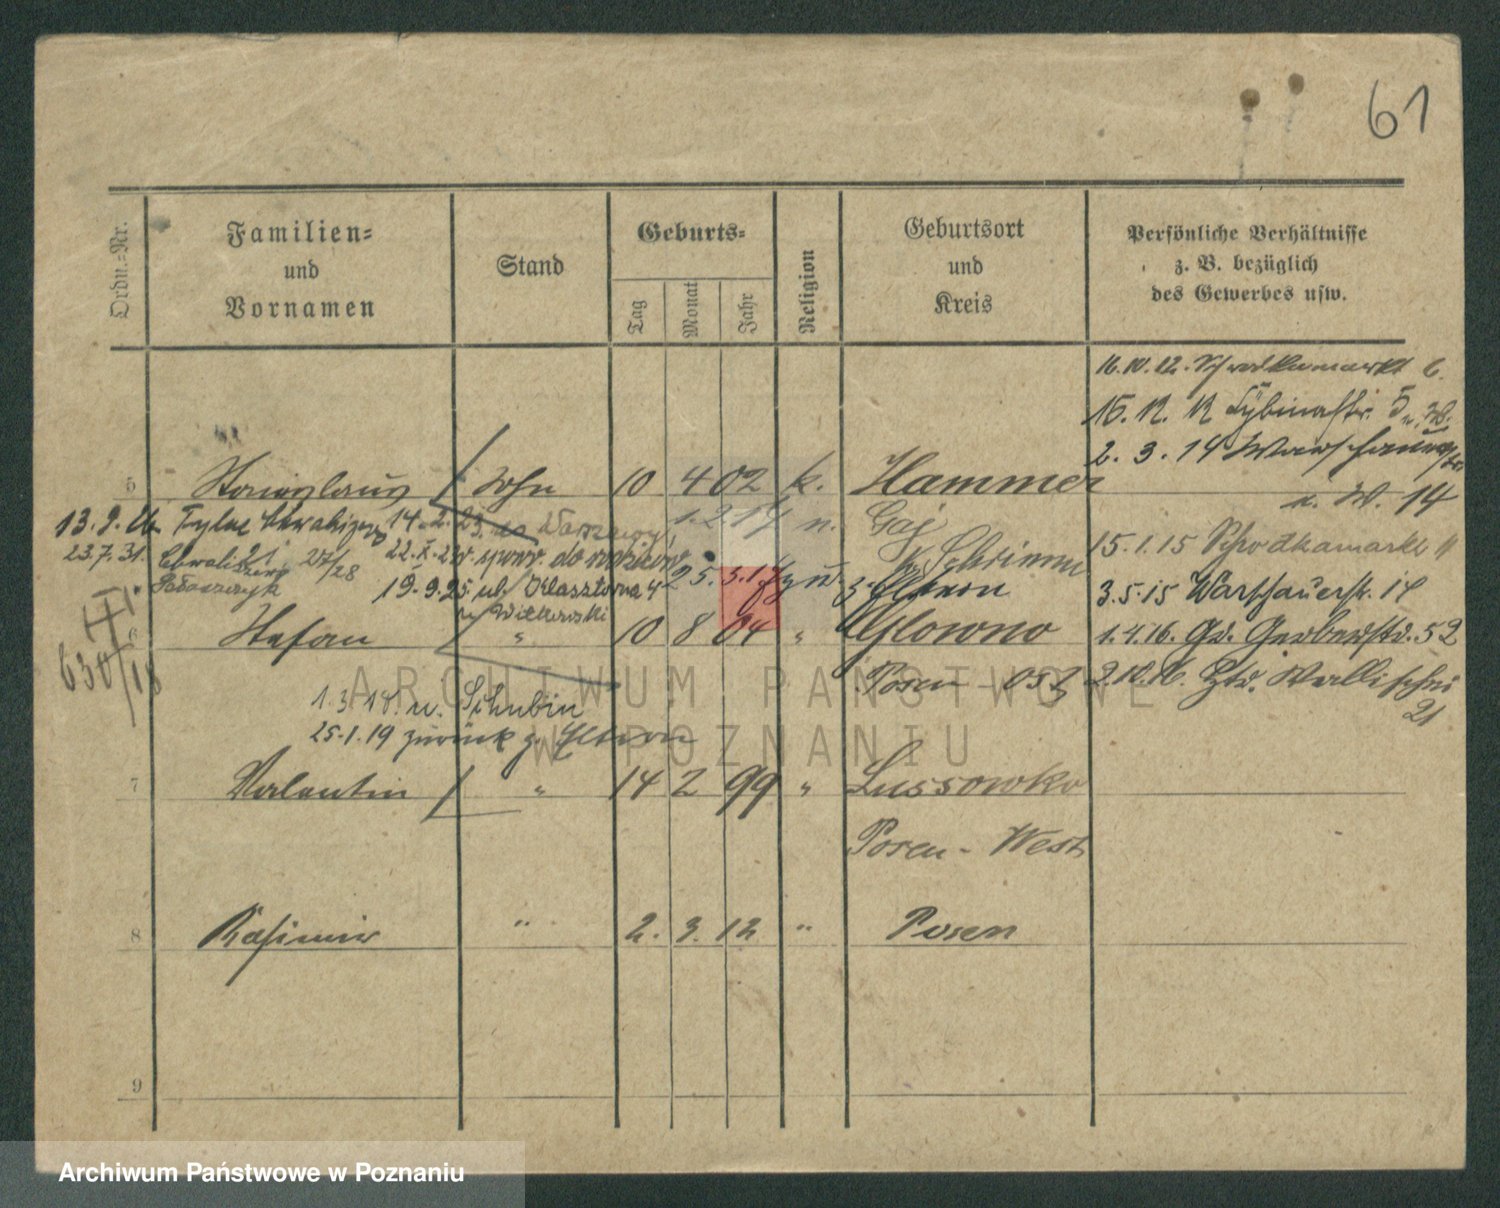 61
Ordn.-Nr.
Familien-
und
Vornamen
Stand
Geburts-
Tag
Monat
Jahr
Religion
Geburtsort
und
Kreis
Persönliche Verhältnisse
z. B. bezüglich
des Gewerbes usw.
16.10.12. Schrodkamarkt 6.
15. 12. 12 Cybinastr. 5
2. 3. 14 Warschauerstr.
n. W. 14
5 Stanislaus Sohn 10 4 02 k. Hammer
13.9.
14.2.23. Warszawy
1. 2 17 n. Gaj
Kr. Schrimm
15.1.15 Schrodkamarkt 11
23.7.31. 27/28
22.X.23
do rodziców
25. 5. 17 z. Eltern
19.9.25 ul. Klasztorna 4
Witkowski
3.5.15 Warschauerstr. 14
6 Stefan " 10 8 04 " Glowno
1.4.16. Gr. Gerberstr. 52
630/18
Posen - Ost
2.10.16. Wallischei
21
1.3.18. n. Schubin
25.1.19 zurück z. Eltern
7 Valentin " 14 2 99 " Lussowko
Posen - West
8 Kasimir " 2. 3. 12 " Posen
9
ARCHIWUM PAŃSTWOWE
W POZNANIU
Archiwum Państwowe w Poznaniu